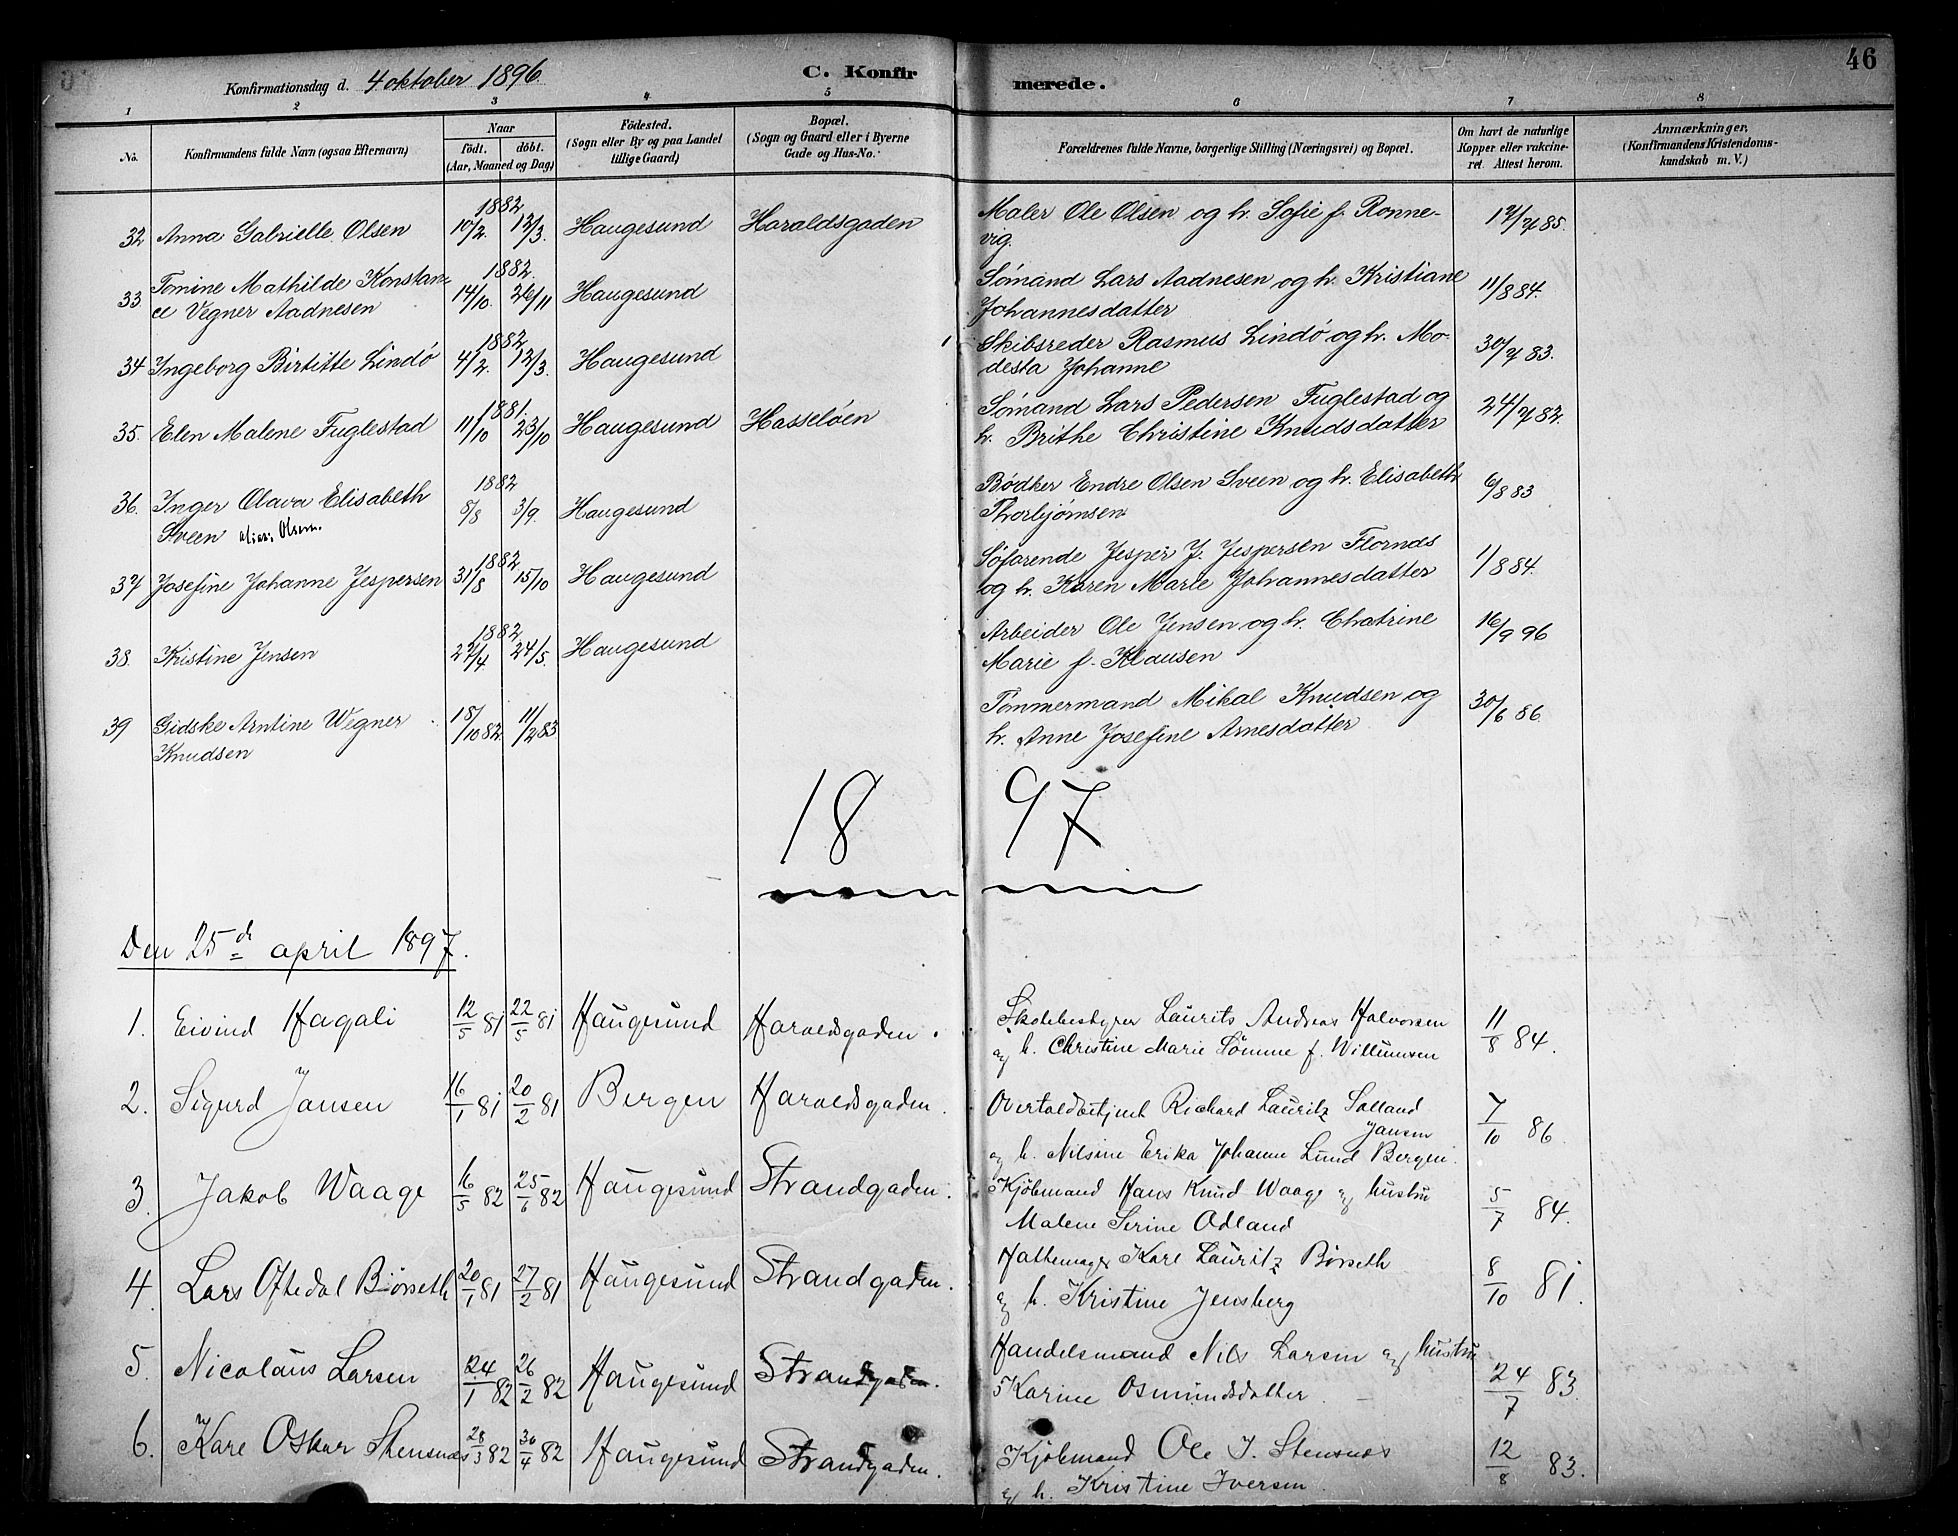 46
Konfirmationsdag d. 4 oktober 1896.
C. Konfirmerede.
1 2 3 4 5 6 7 8
No. Konfirmandens fulde Navn (ogsaa Efternavn) Naar födt. döbt. (Aar, Maaned og Dag) Födested. (Sogn eller By og paa Landet tillige Gaard) Bopæl. (Sogn og Gaard eller i Byerne Gade og Hus-No.) Forældrenes fulde Navne, borgerlige Stilling (Næringsvei) og Bopæl. Om havt de naturlige Kopper eller vakcineret. Attest herom. Anmærkninger. (Konfirmandens Kristendomskundskab m. V.)
1882
32 Anna Gabrielle Olsen 10/2. 12/3. Haugesund Haraldsgaden Maler Ole Olsen og h. Sofie f. Ronnevig. 12/7 85.
1882.
33 Tomine Mathilde Konstance Vegner Aadnesen 14/10. 26/11 Haugesund Sømand Lars Aadnesen og h. Kristiane Johannesdatter 11/8 84.
1882
34 Ingeborg Birtitte Lindö 4/2. 12/3. Haugesund Skibsreder Rasmus Lindö og h. Modesta Johanne 30/7 83.
1881.
35. Elen Malene Fuglestad 11/10 23/10 Haugesund Hasseløen Sømand Lars Pedersen Fuglestad og h. Brithe Christine Knudsdatter 24/7 82.
1882
36. Inger Olava Elisabeth Sveen alias Olsen. 8/8 3/9. Haugesund Bødker Endre Olsen Sveen og h. Elisabeth Thorbjørnsen 6/8 83
1882
37 Josefine Johanne Jespersen 31/8 15/10 Haugesund Søfarende Jesper J. Jespersen Flornes og h. Karen Marie Johannesdatter 1/8 84.
1882
38. Kristine Jensen 27/4 24/5. Haugesund Arbeider Ole Jensen og h. Chatrine Marie f. Klausen 16/9 96
39 Gidske Arntine Wegner Knudsen 18/10 82. 11/2 83 Tømmermand Mikal Knudsen og h. Anne Josefine Arnesdatter 30/6 86.
18 97
Den 25de april 1897.
1. Eivind Hagali 12/5 81 22/5 81 Haugesund Haraldsgaden. Skolebestyrer Laurits Andreas Halvorsen og h. Christine Marie Sømme f. Willumsen 11/8 84.
2. Sigurd Jansen 16/1 81 20/2 81 Bergen Haraldsgaden. Overtoldbetjent Richard Lauritz Salland Jansen og h. Nilsine Erika Johanne Lund Bergen. 7/10 86.
3. Jakob Waage 16/5 82 25/6 82 Haugesund Strandgaden. Kjøbmand Hans Knud Waage og hustru Malene Serine Odland 5/7 84.
4. Lars Oftedal Børseth 20/1 81 27/2 81 Haugesund Strandgaden. Hattemager Karl Lauritz Børseth og h. Kristine Jensberg 8/10 81.
5. Nicolaus Larsen 24/1 82 26/2 82 Haugesund Strandgaden. Handelsmand Nils Larsen og hustru Karine Osmundsdatter 24/7 83.
6. Karl Oskar Stensnæs 28/3 82 30/4 82 Haugesund Strandgaden. Kjøbmand Ole J. Stensnæs og h. Kristine Iversen. 12/8 83.